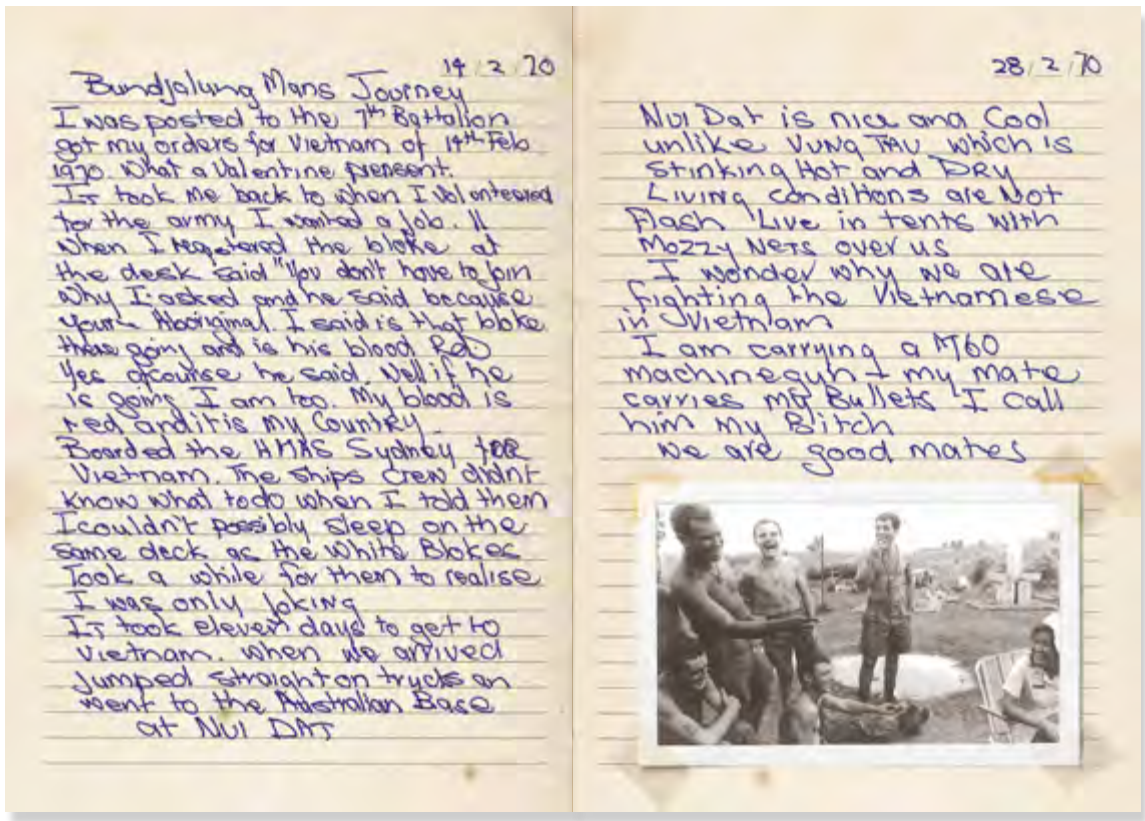 14/2/70
Bundjalung Mans Journey
I was posted to the 7th Battalion
got my orders for Vietnam of 14th Feb
1970. What a Valentine prensent.
It took me back to when I Volenteered
for the army I wanted a job. II
When I regestered the bloke at
the desk said "You don't have to join
Why I asked and he said because
your Aboriginal. I said is that bloke
there going and is his blood Red
Yes ofcourse he said. Well if he
is going I am too. My blood is
red and it is my Country.
Boarded the HMAS Sydney for
Vietnam. The ships crew didn't
know what to do when I told them
I couldn't possibly sleep on the
same deck as the White Blokes
Took a while for them to realise
I was only joking
It took eleven days to get to
Vietnam. when we arrived
Jumped straight on trucks an
went to the Australian Base
at NUI DAT
28/2/70
Nui Dat is nice and Cool
unlike VUNG TAU which is
stinking Hot and DRY
Living conditions are Not
Flash Live in tents with
Mozzy Nets over us
I wonder why we are
fighting the Vietnamese
in Vietnam
I am carrying a M60
machinegun + my mate
carries my Bullets I call
him my Bitch
we are good mates